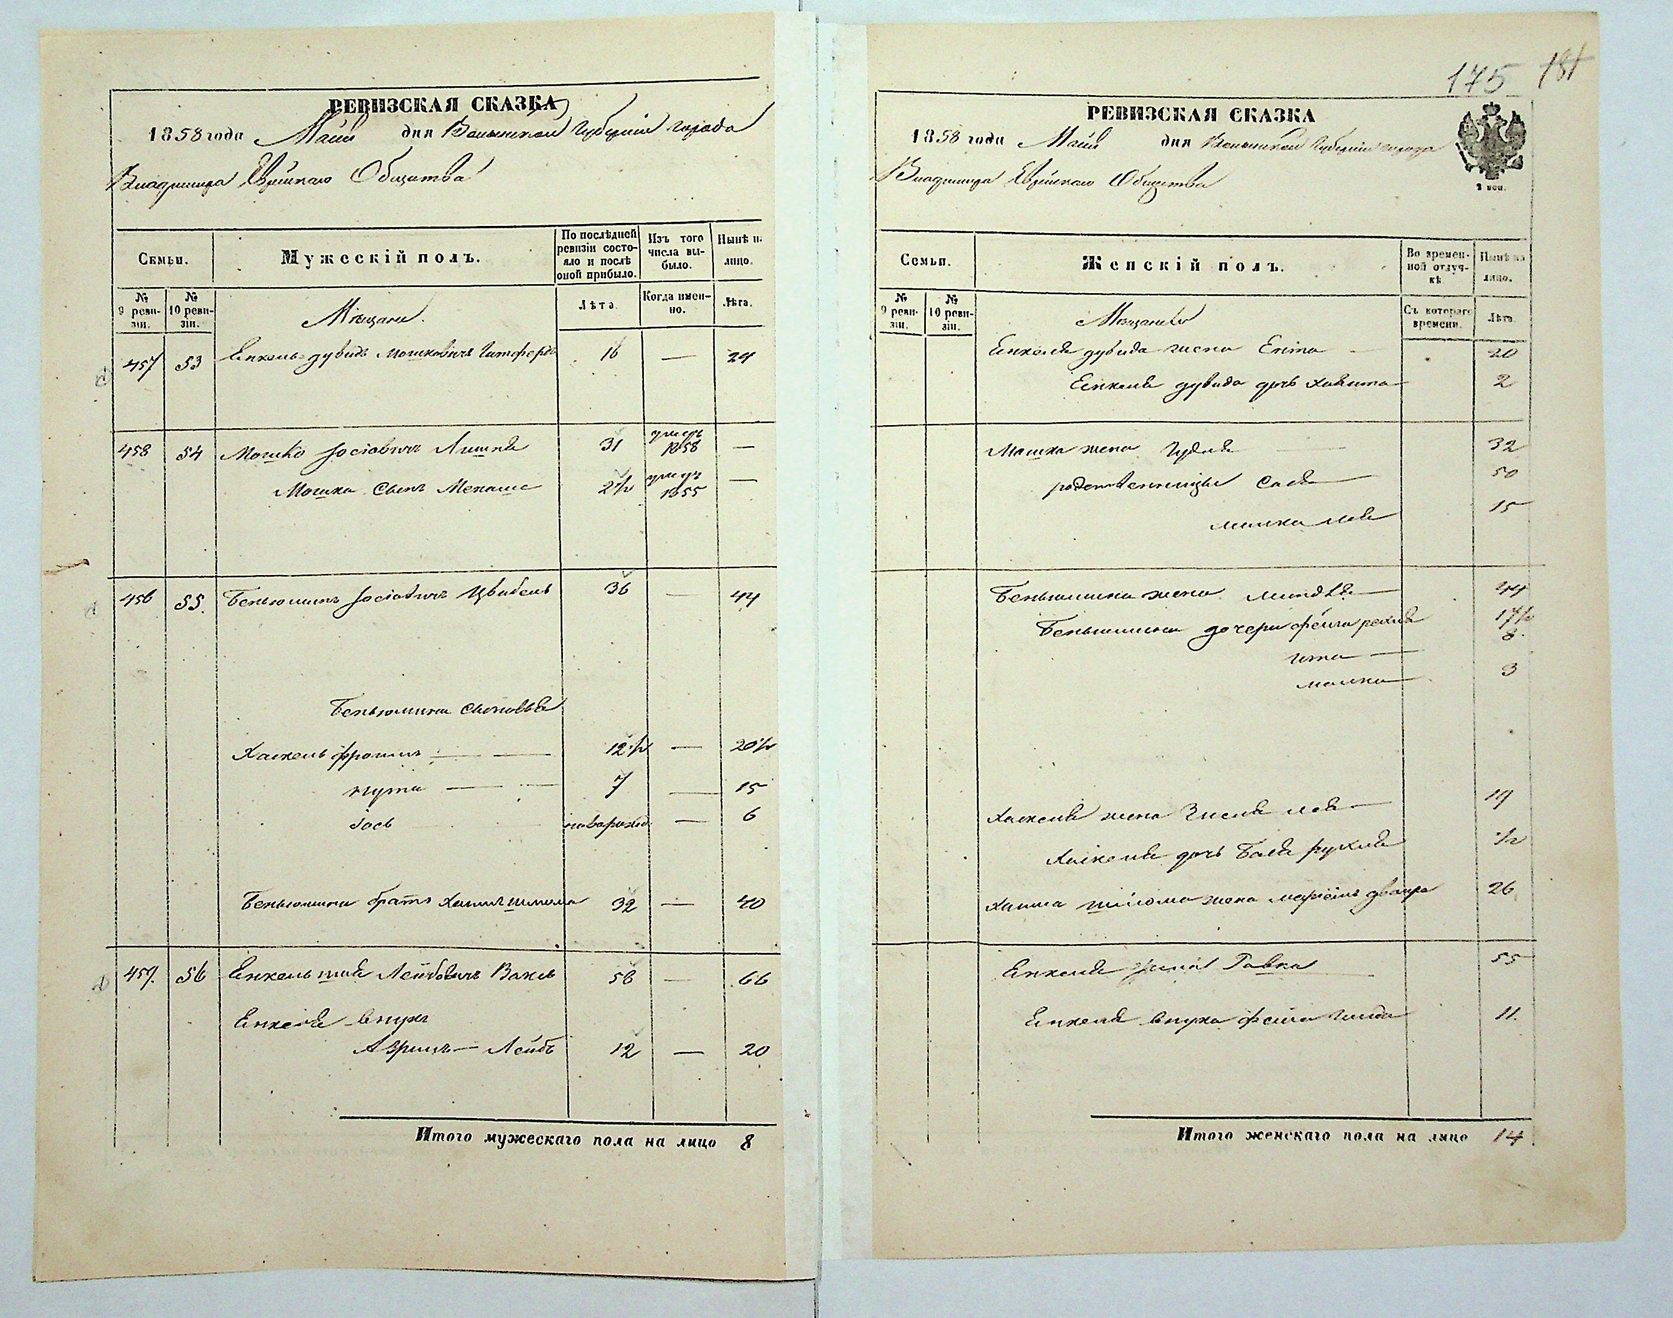 РЕВИЗСКАЯ СКАЗКА
1858 года Майя дня Волынской Губерніи города
Владимира Еврейскаго Общества
Семьи.
Мужескій полъ.
По послѣдней ревизіи состояло и послѣ оной прибыло.
Изъ того числа выбыло.
Нынѣ на лицо.
№ 9 ревизіи.
№ 10 ревизіи.
Мѣщане.
Лѣта.
Когда именно.
Лѣта.
457 53 Енкель-дувидъ Мошковичъ 16 — 24
458 54 Мошко Іосіовичъ 31 умеръ 1858 —
Мошка сынъ Менаше 2½ умеръ 1855 —
456 55. Беньюминъ Іосіовичъ Цвибель 36 — 44
Беньюмина сыновья
Хаскель фроимъ — — 12½ — 20½
мути — — 7 — 15
Іось новорожд. — 6
Беньюмина братъ Хаимъ шлиома 32 — 40
459. 56 Енкель шая Лейбовичъ Ваксъ 58 — 66
Енкеля внукъ
Азриль — Лейбъ 12 — 20
Итого мужескаго пола на лицо 8
175 181
РЕВИЗСКАЯ СКАЗКА
1858 года Майя дня Волынской Губерніи города
Владимира Еврейскаго Общества
2 коп.
Семьи.
Женскій полъ.
Во временной отлучкѣ
Нынѣ на лицо.
№ 9 ревизіи.
№ 10 ревизіи.
Мѣщанки
Съ котораго времени.
Лѣта.
Енкеля дувида жена Ента — 20
Енкеля дувида дочь Хавита 2
Мошка жена Гудля — 32
родственницы Сося 50
малка лея 15
Беньюмина жена Миндля — 44
Беньюмина дочери фейга рейзя 17½
гитя — 8.
малка — 3
Хаскеля жена Зиселя лея — 19
Хаскеля дочь Бася рухля ½
Хаима шліома жена маріемъ двойра 26
Енкеля жена Гавка 55
Енкеля внука фейга гинда 11.
Итого женскаго пола на лицо 14.